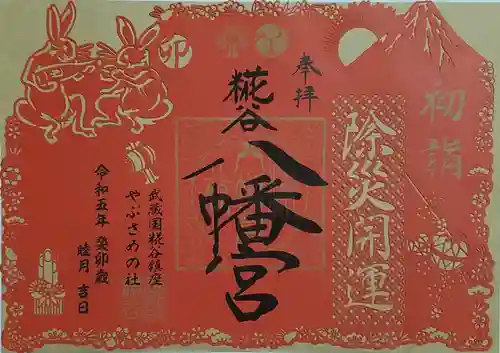 奉拝
初詣
除災開運
糀谷
八幡宮
卯
武蔵国糀谷鎮座
やぶさめの社
令和五年 癸卯歳
睦月 吉日